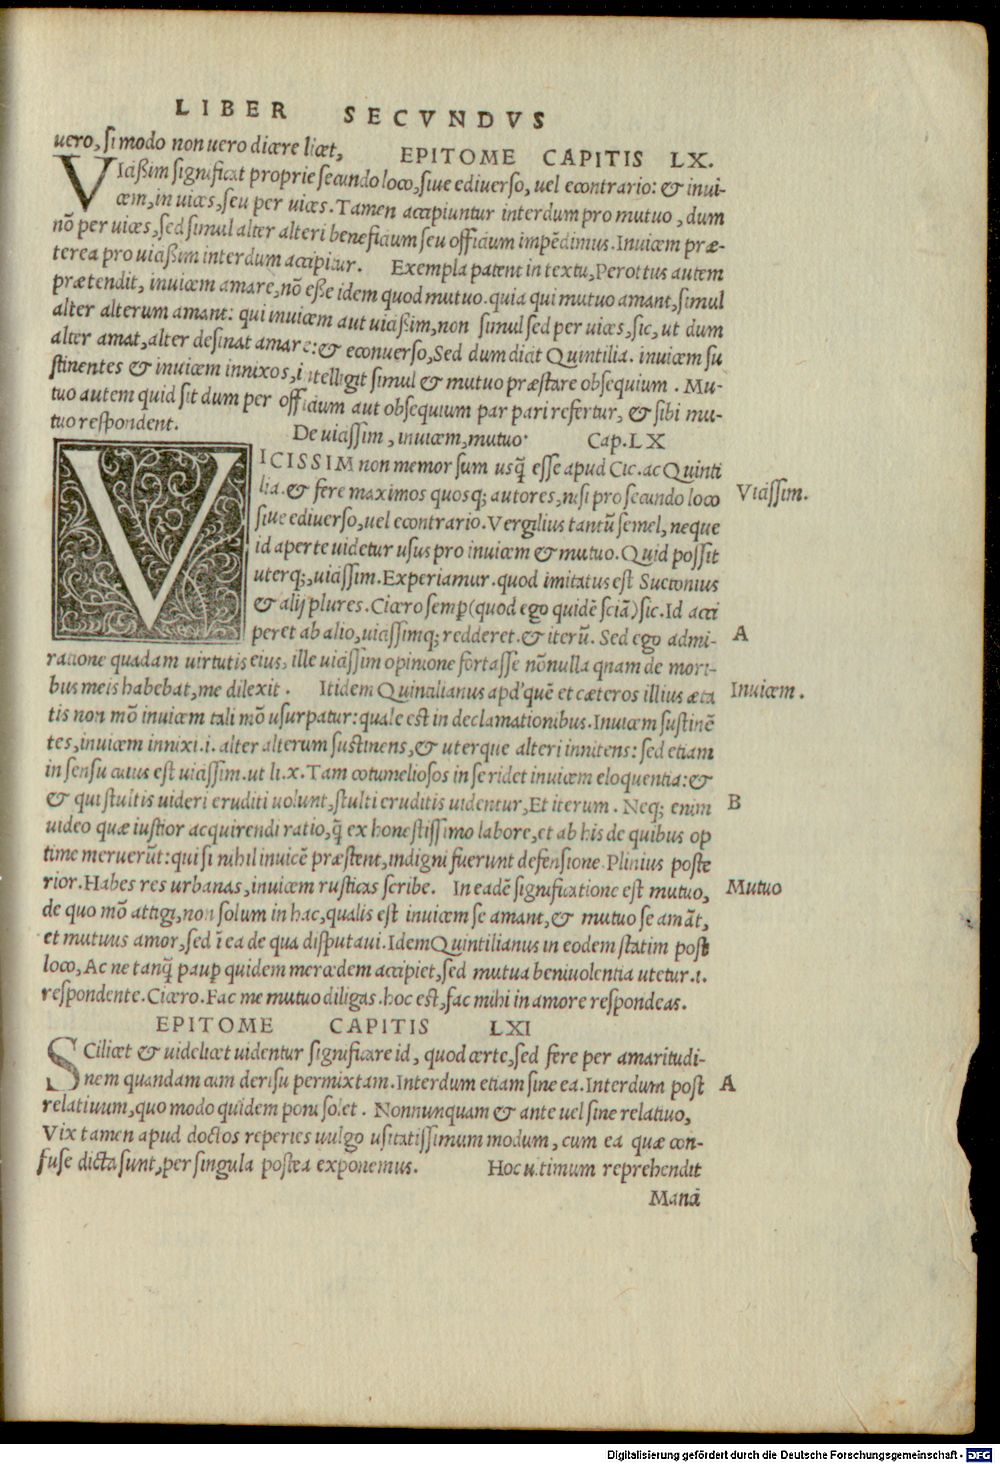 LIBER SECVNDVS
uero, si modo non uero dicere licet, EPITOME CAPITIS LX.
VIcißim significat proprie secundo loco, siue ediuerso, uel econtrario: & inui-
cem, in uices, seu per uices. Tamen accipiuntur interdum pro mutuo, dum
nō per uices, sed simul alter alteri beneficium seu officium impēdimus. Inuicem præ-
terea pro uicißim interdum accipitur. Exempla patent in textu, Perottus autem
prætendit, inuicem amare, nō eße idem quod mutuo. quia qui mutuo amant, simul
alter alterum amant: qui inuicem aut uicißim, non simul sed per uices, sic, ut dum
alter amat, alter desinat amare: & econuerso, Sed dum dicit Quintilia. inuicem su
stinentes & inuicem innixos, intelligit simul & mutuo præstare obsequium. Mu-
tuo autem quid sit dum per officium aut obsequium par pari refertur, & sibi mu-
tuo respondent.
De uicissim, inuicem, mutuo. Cap. LX
VICISSIM non memor sum usq̃ esse apud Cic. ac Quinti
lia. & fere maximos quosq; autores, nisi pro secundo loco
Vicissim.
siue ediuerso, uel econtrario. Vergilius tantū semel, neque
id aperte uidetur usus pro inuicem & mutuo. Quid possit
uterq;, uicissim. Experiamur. quod imitatus est Suetonius
& alij plures. Cicero semꝑ (quod ego quidē sciā) sic. Id acci
peret ab alio, uicissimq; redderet. & iterū. Sed ego admi-
A
ratione quadam uirtutis eius, ille uicissim opinione fortasse nōnulla quam de mori-
bus meis habebat, me dilexit. Itidem Quintilianus apd' quē et cæteros illius æta
Inuicem.
tis non mō inuicem tali mō usurpatur: quale est in declamationibus. Inuicem sustinē
tes, inuicem innixi. i. alter alterum sustinens, & uterque alteri innitens: sed etiam
in sensu cuius est uicissim. ut li. x. Tam cōtumeliosos in se ridet inuicem eloquentia: &
& qui stultis uideri eruditi uolunt, stulti eruditis uidentur, Et iterum. Neq; enim
B
uideo quæ iustior acquirendi ratio, q̃ ex honestissimo labore, et ab his de quibus op
time meruerūt: qui si nihil inuicē præstent, indigni fuerunt defensione. Plinius poste
rior. Habes res urbanas, inuicem rusticas scribe. In eadē significatione est mutuo,
Mutuo
de quo mō attigi, non solum in hac, qualis est inuicem se amant, & mutuo se amāt,
et mutuus amor, sed ī ea de qua disputaui. Idem Quintilianus in eodem statim post
loco, Ac ne tanq̃ paup quidem mercedem accipiet, sed mutua beniuolentia utetur. i.
respondente. Cicero. Fac me mutuo diligas. hoc est, fac mihi in amore respondeas.
EPITOME CAPITIS LXI
SCilicet & uidelicet uidentur significare id, quod certe, sed fere per amaritudi-
nem quandam cum derisu permixtam. Interdum etiam sine ea. Interdum post
A
relatiuum, quo modo quidem poni solet. Nonnunquam & ante uel sine relatiuo,
Vix tamen apud doctos reperies uulgo usitatissimum modum, cum ea quæ con-
fuse dicta sunt, per singula postea exponemus. Hoc ultimum reprehendit
Manci
Digitalisierung gefördert durch die Deutsche Forschungsgemeinschaft - DFG